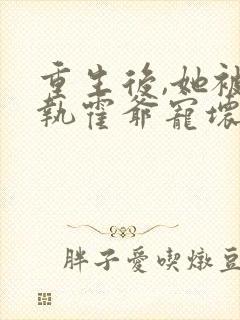 重生後,她被
執霍爺寵壞
胖子愛喫燉豆